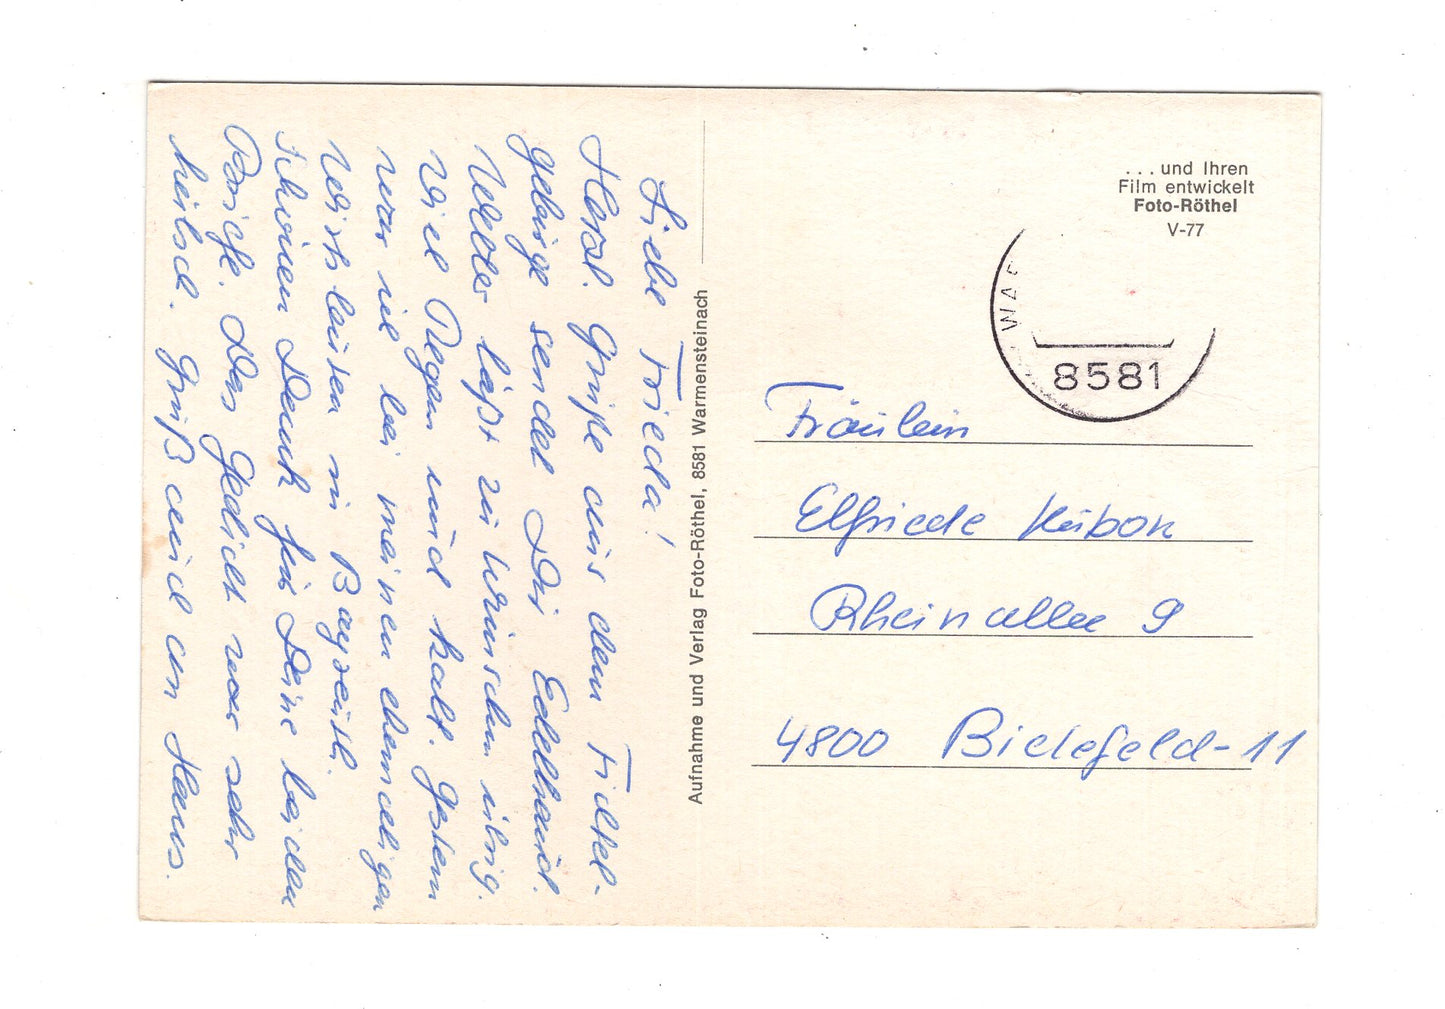 Liebe Frieda!
Herzl. Grüße aus dem Fichtel-
gebirge sendet Dir Edelhand.
Wetter läßt zu wünschen übrig.
Viel Regen und kalt. Gestern
war ich bei meinen ehemaligen
Wirtsleuten in Bayreuth.
Schönen Dank für Deine beiden
Briefe. Das Gedicht war sehr
hübsch. Gruß auch an Hans.
Aufnahme und Verlag Foto-Röthel, 8581 Warmensteinach
...und Ihren
Film entwickelt
Foto-Röthel
V-77
8581
Fräulein
Elfriede Kubon
Rheinallee 9
4800 Bielefeld-11